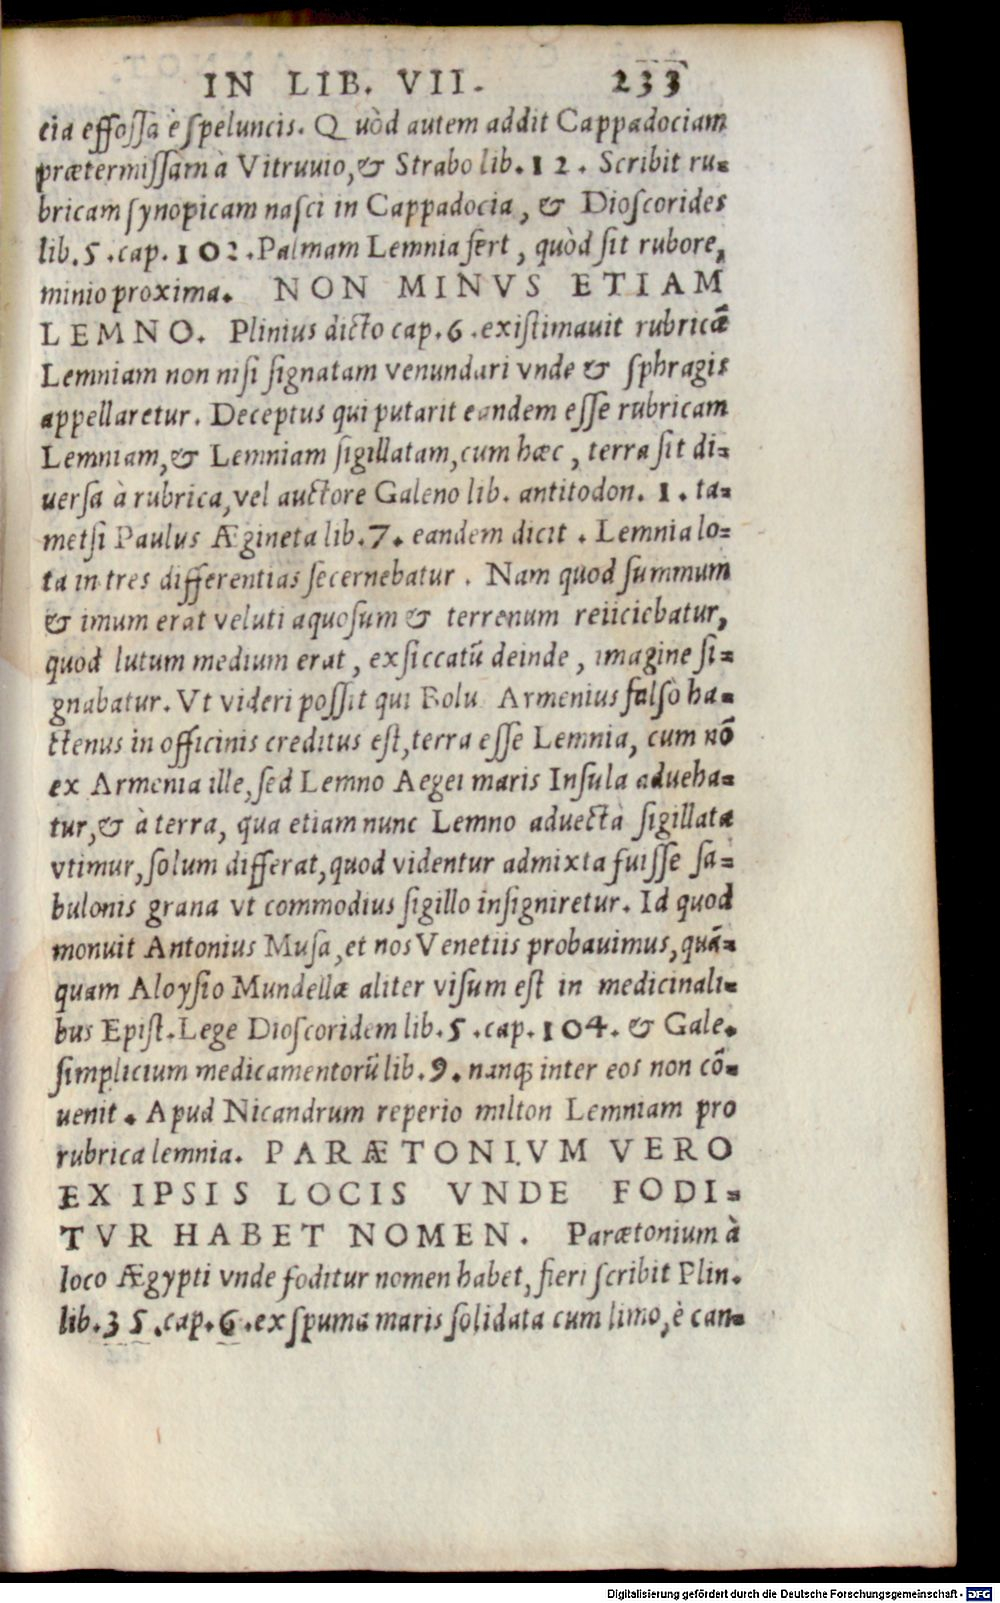 IN LIB. VII. 233
cia effossa è speluncis. Quòd autem addit Cappadociam
prætermissam à Vitruuio, & Strabo lib. 12. Scribit ru-
bricam synopicam nasci in Cappadocia, & Dioscorides
lib. 5. cap. 102. Palmam Lemnia fert, quòd sit rubore,
minio proxima. NON MINVS ETIAM
LEMNO. Plinius dicto cap. 6. existimauit rubricā
Lemniam non nisi signatam venundari vnde & sphragis
appellaretur. Deceptus qui putarit eandem esse rubricam
Lemniam, & Lemniam sigillatam, cum hæc, terra sit di-
uersa à rubrica, vel auctore Galeno lib. antitodon. 1. ta-
metsi Paulus Ægineta lib. 7. eandem dicit. Lemnia lo-
ta in tres differentias secernebatur. Nam quod summum
& imum erat veluti aquosum & terrenum reiiciebatur,
quod lutum medium erat, exsiccatū deinde, imagine si-
gnabatur. Vt videri possit qui Bolu Armenius falsò ha-
ctenus in officinis creditus est, terra esse Lemnia, cum nō
ex Armenia ille, sed Lemno Aegei maris Insula adueha-
tur, & à terra, qua etiam nunc Lemno aduecta sigillata
vtimur, solum differat, quod videntur admixta fuisse sa-
bulonis grana vt commodius sigillo insigniretur. Id quod
monuit Antonius Musa, et nos Venetiis probauimus, quā-
quam Aloysio Mundellæ aliter visum est in medicinali-
bus Epist. Lege Dioscoridem lib. 5. cap. 104. & Gale.
simplicium medicamentorū lib. 9. nanq; inter eos non cō-
uenit. Apud Nicandrum reperio milton Lemniam pro
rubrica lemnia. PARÆTONIVM VERO
EX IPSIS LOCIS VNDE FODI-
TVR HABET NOMEN. Parætonium à
loco Ægypti vnde foditur nomen habet, fieri scribit Plin.
lib. 35. cap. 6. ex spuma maris solidata cum limo, è can-
Digitalisierung gefördert durch die Deutsche Forschungsgemeinschaft - DFG